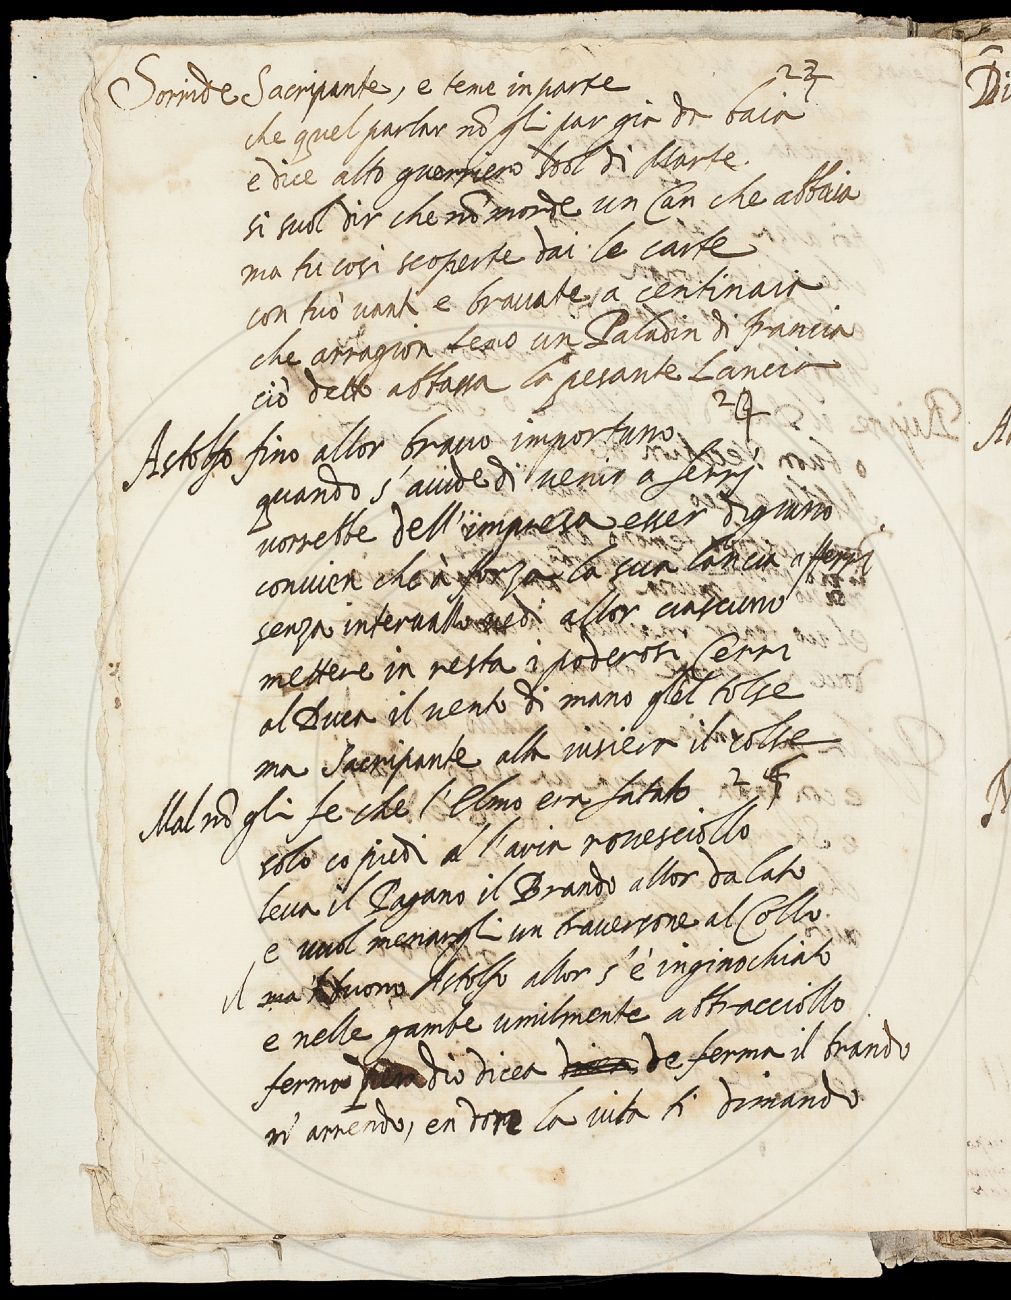 23
Sorride Sacripante, e teme in parte
che quel parlar nõ gli par già da baia
e dice alto guerriero sol di Marte.
si suol dir che nõ morde un Can che abbaia
ma tu così scoperte dai le carte
con tuo' uanti e brauate a centinaia
che arragion temo un Paladin di francia
ciò detto abbassa la pesante Lancia
24
Astolfo fino allor brauo importuno
quando s'auide di uenir a ferri
uorrebbe dell'impresa esser digiuno
conuien ch'à forza la sua lancia afferri
senza interuallo uedi allor ciascuno
mettere in resta i poderosi Cerri
al Duca il uento di mano glel tolse
ma Sacripante alla uisiera il colse
25
Mal nõ gli fe che l'Elmo era fatato
solo co piedi a l'aria rouesciollo
leua il Pagano il Brando allor da lato
e uuol menargli un trauersone al Collo.
il buono Astolfo allor s'è inginochiato
e nelle gambe umilmente abbracciollo
fermo dio dicea de ferma il brando
m'arrendo, en dono la uita ti dimando